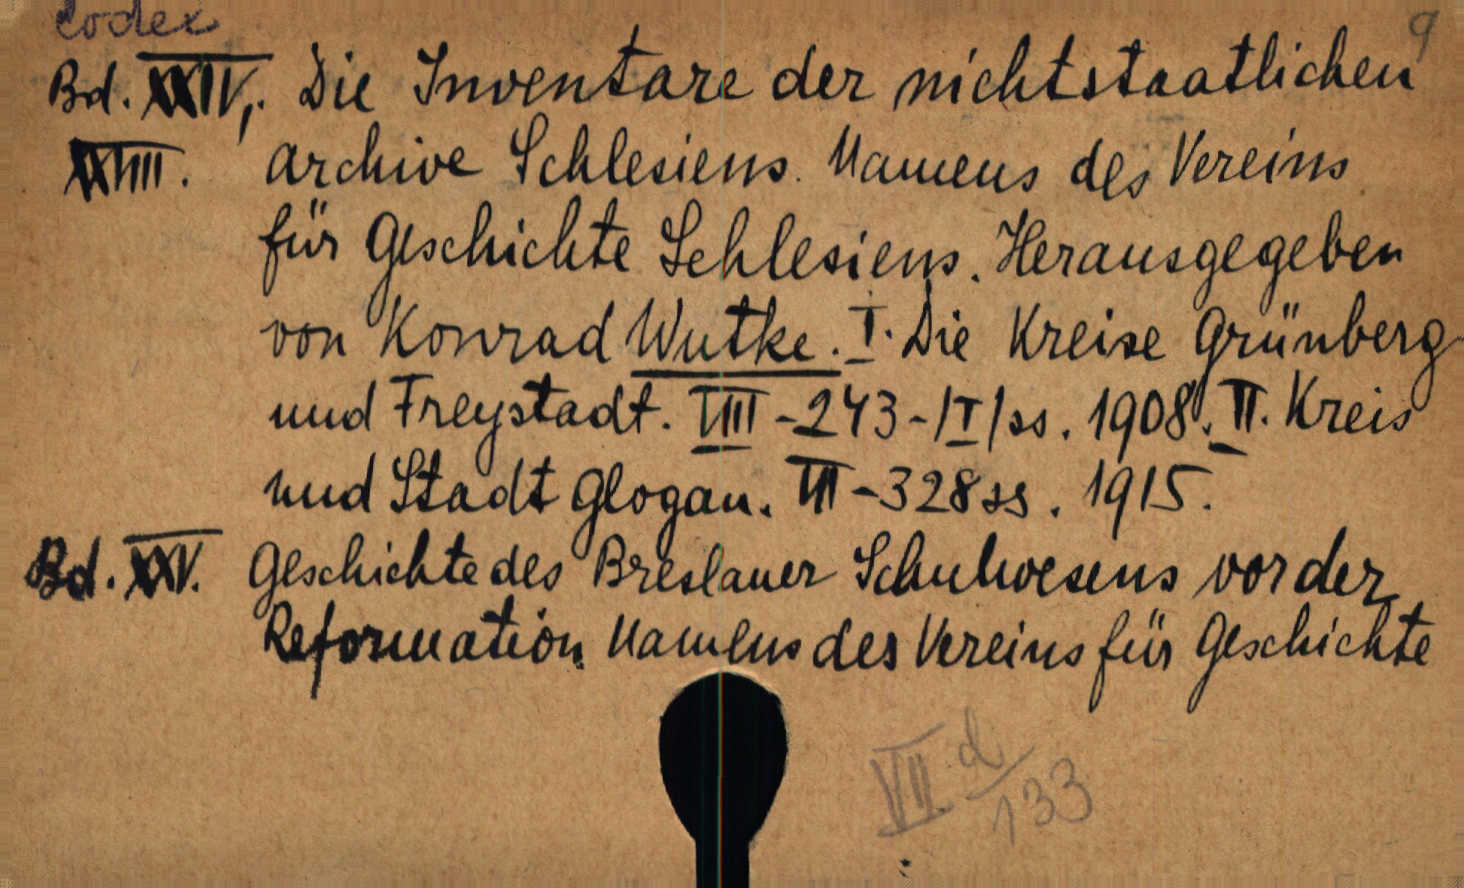 Codex
9
Bd. XXIV,. Die Inventare der nichtstaatlichen
XXVIII. Archive Schlesiens. Namens des Vereins
für Geschichte Schlesiens. Herausgegeben
von Konrad Wutke. I. Die Kreise Grünberg
und Freystadt. VIII-243-/I/ss. 1908. II. Kreis
und Stadt Glogau. VII-328 ss. 1915.
Bd. XXV. Geschichte des Breslauer Schulwesens vor der
Reformation. Namens des Vereins für Geschichte
VII d/133